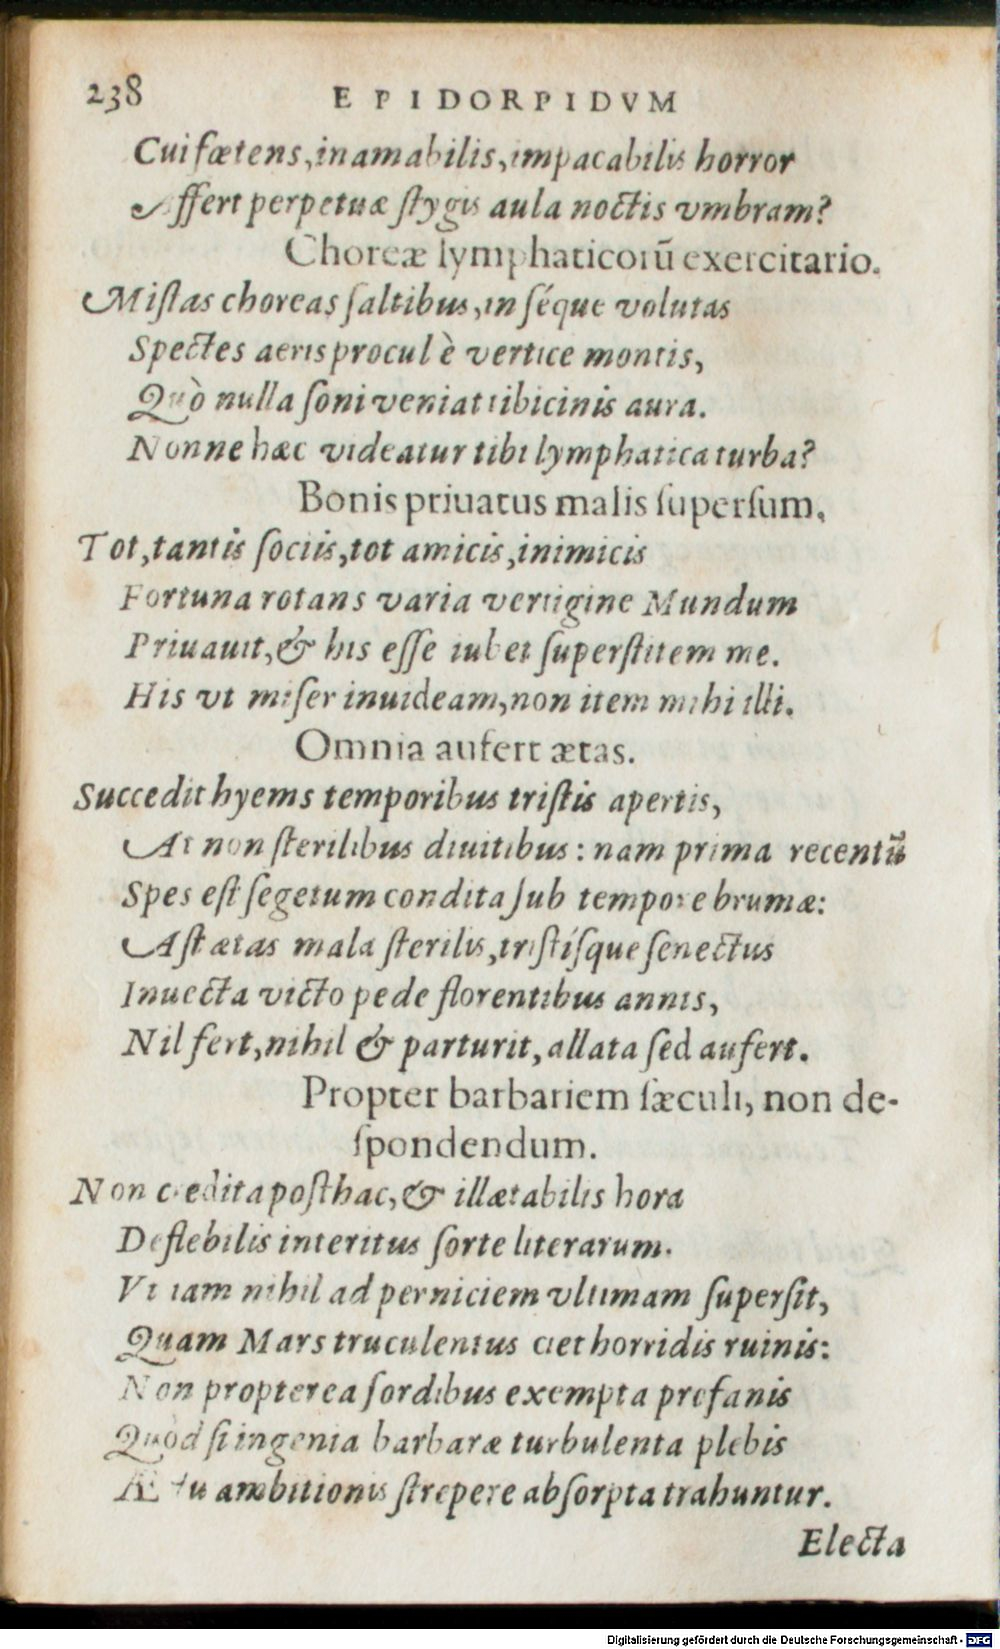 238 EPIDORPIDVM
Cui fœtens, inamabilis, impacabilis horror
Affert perpetuæ ſtygis aula noctis vmbram?
Choreæ lymphaticorũ exercitatio.
Miſtas choreas ſaltibus, in ſéque volutas
Spectes aeris procul è vertice montis,
Quò nulla ſoni veniat tibicinis aura.
Nonne hæc videatur tibi lymphatica turba?
Bonis priuatus malis ſuperſum.
Tot, tantis ſociis, tot amicis, inimicis
Fortuna rotans varia vertigine Mundum
Priuauit, & his eſſe iubet ſuperſtitem me.
His vt miſer inuideam, non item mihi illi.
Omnia aufert ætas.
Succedit hyems temporibus triſtis apertis,
At non ſterilibus diuitibus: nam prima recentũ
Spes eſt ſegetum condita ſub tempore brumæ:
Aſt ætas mala ſterilis, triſtíſque ſenectus
Inuecta victo pede florentibus annis,
Nil fert, nihil & parturit, allata ſed aufert.
Propter barbariem ſæculi, non de-
ſpondendum.
Non credita poſthac, & illætabilis hora
Deflebilis interitus ſorte literarum.
Vt iam nihil ad perniciem vltimam ſuperſit,
Quam Mars truculentus ciet horridis ruinis:
Non propterea ſordibus exempta profanis
Quòd ſi ingenia barbaræ turbulenta plebis
Æſtu ambitionis ſtrepere abſorpta trahuntur.
Electa
Digitalisierung gefördert durch die Deutsche Forschungsgemeinschaft - DFG